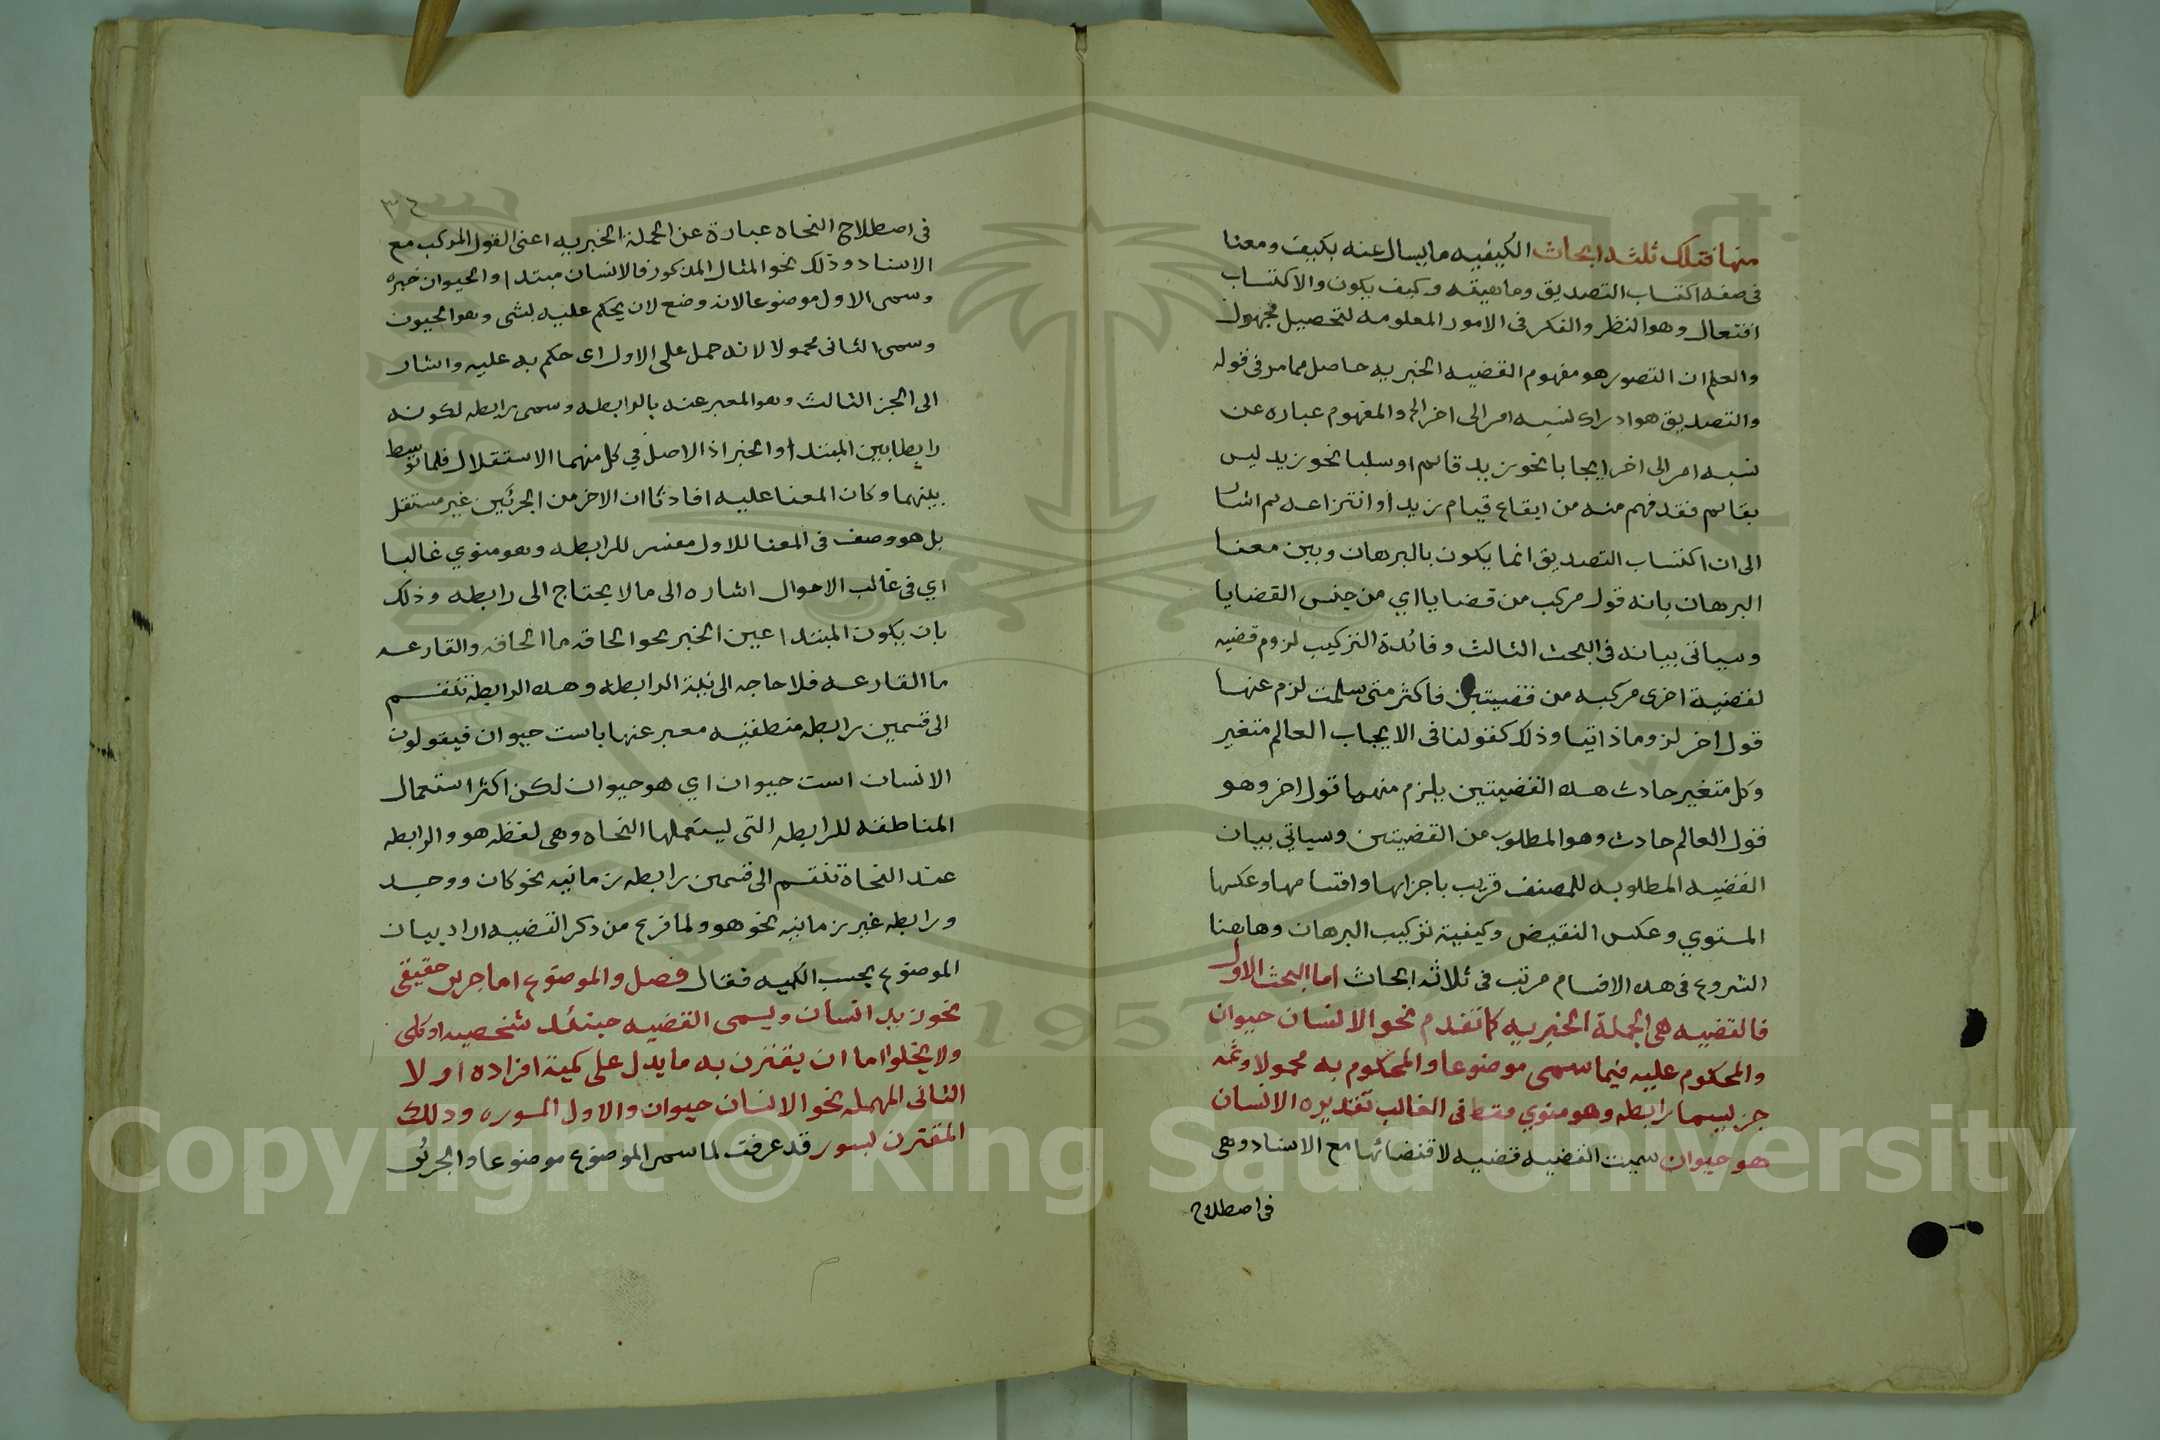 منها فتلك ثلثه ابحاث الكيفيه ما يسال عنه بكيف ومعنا
في صفه اكتساب التصديق وماهيته وكيف يكون والاكتساب
افتعال وهو النظر والفكر فى الامور المعلومه لتحصيل مجهول
والعلم ان التصور هو مفهوم القضيه الخبريه حاصل مما مر فى قوله
والتصديق هو ادراك نسبه امر الى اخر الخ والمفهوم عباره عن
نسبه امر الى اخر ايجابا نحو زيد قايم او سلبا نحو زيد ليس
بقايم فقد فهم منه من ايقاع قيام زيد او انتزاعه ثم اشار
الى ان اكتساب التصديق انما يكون بالبرهان وبين معنا
البرهان بانه قول مركب من قضايا اي من جنس القضايا
وسياتى بيانه فى البحث الثالث وفائدة التركيب لزوم قضيه
لقضية اخرى مركبه من قضيتين فاكثر متى سلمت لزم عنها
قول اخر لزوما ذاتيا وذلك كقولنا فى الايجاب العالم متغير
وكل متغير حادث هذه القضيتين يلزم منهما قول اخر وهو
قول العالم حادث وهو المطلوب من القضيتين وسياتي بيان
القضيه المطلوبه للمصنف قريب باجزايها واقسامها وعكسها
المستوي وعكس النقيض وكيفية تركيب البرهان وهاهنا
الشروع فى هذه الاقسام مرتب فى ثلاثه ابحاث اما البحث الاول
فالقضيه هى الجملة الخبريه كما تقدم نحو الانسان حيوان
والمحكوم عليه فيها سمى موضوعا والمحكوم به محمولا وثمه
جز يسما رابطه وهو منوي فقط فى الغالب تقديره الانسان
هو حيوان سميت القضيه قضيه لاقتضائها مع الاسناد وهى
فى اصطلاح
٣٤
فى اصطلاح النحاه عبارة عن الجملة الخبريه اعنى القول المركب مع
الاسناد وذلك نحو المثال المذكور فالانسان مبتدا والحيوان خبره
وسمى الاول موضوعا لانه وضع لان يحكم عليه بشى وهو الحيون
وسمى الثانى محمولا لانه حمل على الاول اى حكم به عليه واشار
الى الجز الثالث وهو المعبر عنه بالرابطه وسمى رابطه لكونه
رابطا بين المبتدا والخبر اذ الاصل في كل منهما الاستقلال فلما توسط
بينهما وكان المعنا عليه افادتا ان الاخر من الجزئين غير مستقل
بل هو وصف فى المعنا للاول مفسر للرابطه وهو منوي غالبا
اي فى غالب الاحوال اشاره الى ما لا يحتاج الى رابطه وذلك
بان يكون المبتدا عين الخبر نحو الحاقه ما الحاقه والقارعه
ما القارعه فلا حاجه الى نية الرابطه وهذه الرابطة تنقسم
الى قسمين رابطه منطقيه معبر عنها باست حيوان فيقولون
الانسان است حيوان اي هو حيوان لكن اكثر استعمال
المناطقه للرابطه التى يستعملها النحاه وهى لفظه هو والرابطه
عند النحاة تنقسم الى قسمين رابطه زمانيه نحو كان ووجد
ورابطه غير زمانيه نحو هو ولما فرغ من ذكر القضيه اراد بيان
الموضوع بحسب الكميه فقال فصل والموضوع اما جزى حقيقى
نحو زيد انسان ويسمى القضيه حينئذ شخصيه او كلى
ولا يخلوا اما ان يقترن به ما يدل على كمية افراده او لا
الثانى المهمله نحو الانسان حيوان والاول المسوره وذلك
المقترن بسور قد عرفت لما سمى الموضوع موضوعا والجزئى
Copyright © King Saud University
1957